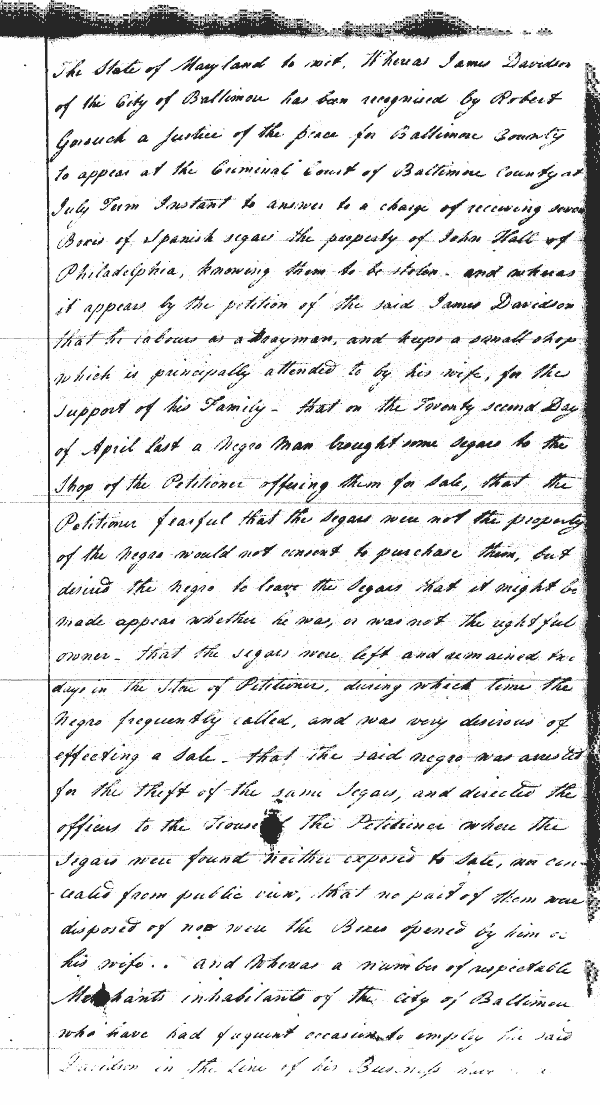 The State of Maryland to wit, Whereas James Davidson
of the City of Baltimore has been recognised by Robert
Gorsuch a Justice of the peace for Baltimore County
to appear at the Criminal Court of Baltimore County at
July Term Instant to answer to a charge of receiving seven
Boxes of Spanish segars the property of John Hall of
Philadelphia, knowing them to be stolen - and whereas
it appears by the petition of the said James Davidson
that he labours as a Drayman, and keeps a small shop
which is principally attended to by his wife, for the
support of his Family - that on the Twenty second Day
of April last a Negro Man brought some segars to the
Shop of the Petitioner offering them for Sale, that the
Petitioner fearful that the Segars were not the property
of the Negro would not consent to purchase them, but
desired the Negro to leave the Segars that it might be
made appear whether he was, or was not the rightful
owner - that the segars were left and remained
days in the Store of Petitioner, during which time the
Negro frequently called, and was very desirous of
effecting a Sale - that the said negro was arrested
for the theft of the same Segars, and directed the
officers to the House of the Petitioner where the
Segars were found neither exposed to Sale, nor con-
-cealed from public view, that no part of them were
disposed of nor were the Boxes opened by him or
his wife - and Whereas a number of respectable
Merchants inhabitants of the City of Baltimore
who have had frequent occasion to employ the said
Davidson in the Line of his Business have